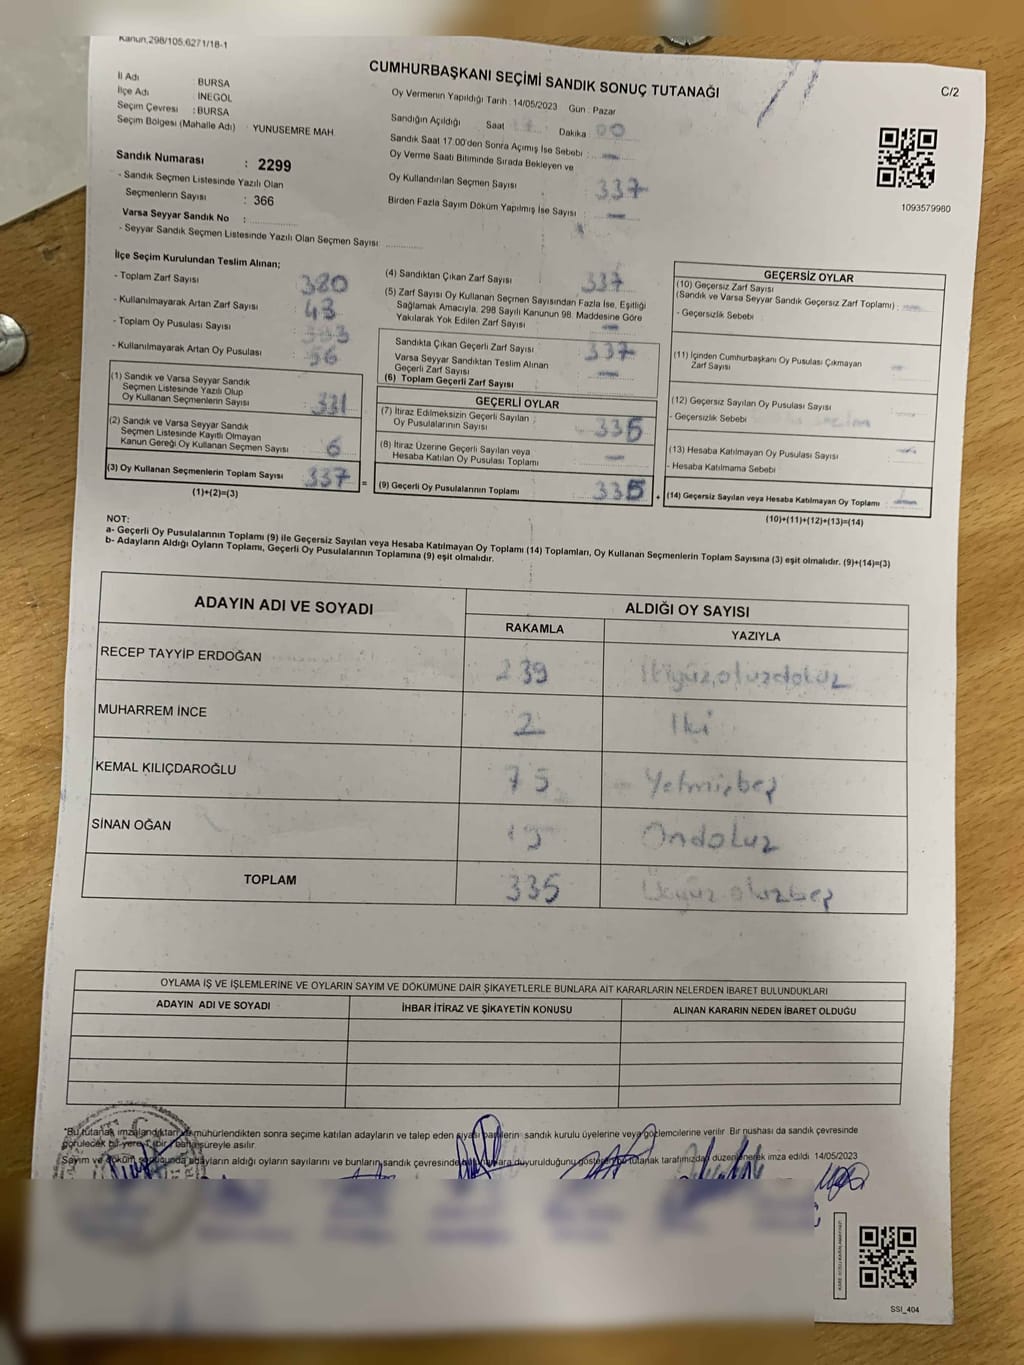 Kanun,298/105,6271/18-1
CUMHURBAŞKANI SEÇİMİ SANDIK SONUÇ TUTANAĞI
C/2
İl Adı : BURSA
İlçe Adı : İNEGÖL
Seçim Çevresi : BURSA
Seçim Bölgesi (Mahalle Adı) : YUNUSEMRE MAH.
Sandık Numarası : 2299
- Sandık Seçmen Listesinde Yazılı Olan
Seçmenlerin Sayısı : 366
Varsa Seyyar Sandık No :
- Seyyar Sandık Seçmen Listesinde Yazılı Olan Seçmen Sayısı
Oy Vermenin Yapıldığı Tarih : 14/05/2023 Gün : Pazar
Sandığın Açıldığı Saat Dakika 00
Sandık Saat 17.00'den Sonra Açımış İse Sebebi : —
Oy Verme Saati Bitiminde Sırada Bekleyen ve
Oy Kullandırılan Seçmen Sayısı 337
Birden Fazla Sayım Döküm Yapılmış İse Sayısı : —
1093579980
İlçe Seçim Kurulundan Teslim Alınan;
- Toplam Zarf Sayısı : 380
- Kullanılmayarak Artan Zarf Sayısı : 43
- Toplam Oy Pusulası Sayısı :
- Kullanılmayarak Artan Oy Pusulası : 56
(1) Sandık ve Varsa Seyyar Sandık
Seçmen Listesinde Yazılı Olup
Oy Kullanan Seçmenlerin Sayısı : 331
(2) Sandık ve Varsa Seyyar Sandık
Seçmen Listesinde Kayıtlı Olmayan
Kanun Gereği Oy Kullanan Seçmen Sayısı : 6
(3) Oy Kullanan Seçmenlerin Toplam Sayısı : 337
(1)+(2)=(3)
=
(4) Sandıktan Çıkan Zarf Sayısı : 337
(5) Zarf Sayısı Oy Kullanan Seçmen Sayısından Fazla İse, Eşitliği
Sağlamak Amacıyla, 298 Sayılı Kanunun 98. Maddesine Göre
Yakılarak Yok Edilen Zarf Sayısı : —
Sandıkta Çıkan Geçerli Zarf Sayısı : 337
Varsa Seyyar Sandıktan Teslim Alınan
Geçerli Zarf Sayısı : —
(6) Toplam Geçerli Zarf Sayısı
GEÇERLİ OYLAR
(7) İtiraz Edilmeksizin Geçerli Sayılan
Oy Pusulalarının Sayısı : 335
(8) İtiraz Üzerine Geçerli Sayılan veya
Hesaba Katılan Oy Pusulası Toplamı : —
(9) Geçerli Oy Pusulalarının Toplamı : 335
+
GEÇERSİZ OYLAR
(10) Geçersiz Zarf Sayısı
(Sandık ve Varsa Seyyar Sandık Geçersiz Zarf Toplamı) : —
- Geçersizlik Sebebi :
(11) İçinden Cumhurbaşkanı Oy Pusulası Çıkmayan
Zarf Sayısı : —
(12) Geçersiz Sayılan Oy Pusulası Sayısı :
- Geçersizlik Sebebi :
(13) Hesaba Katılmayan Oy Pusulası Sayısı : —
- Hesaba Katılmama Sebebi :
(14) Geçersiz Sayılan veya Hesaba Katılmayan Oy Toplamı :
(10)+(11)+(12)+(13)=(14)
NOT:
a- Geçerli Oy Pusulalarının Toplamı (9) ile Geçersiz Sayılan veya Hesaba Katılmayan Oy Toplamı (14) Toplamları, Oy Kullanan Seçmenlerin Toplam Sayısına (3) eşit olmalıdır. (9)+(14)=(3)
b- Adayların Aldığı Oyların Toplamı, Geçerli Oy Pusulalarının Toplamına (9) eşit olmalıdır.
ADAYIN ADI VE SOYADI ALDIĞI OY SAYISI
RAKAMLA YAZIYLA
RECEP TAYYİP ERDOĞAN 239 İkiyüzotuzdokuz
MUHARREM İNCE 2 İki
KEMAL KILIÇDAROĞLU 75 Yetmişbeş
SİNAN OĞAN 19 Ondokuz
TOPLAM 335 Üçyüzotuzbeş
OYLAMA İŞ VE İŞLEMLERİNE VE OYLARIN SAYIM VE DÖKÜMÜNE DAİR ŞİKAYETLERLE BUNLARA AİT KARARLARIN NELERDEN İBARET BULUNDUKLARI
ADAYIN ADI VE SOYADI İHBAR İTİRAZ VE ŞİKAYETİN KONUSU ALINAN KARARIN NEDEN İBARET OLDUĞU
*Bu tutanak imzalandıktan ve mühürlendikten sonra seçime katılan adayların ve talep eden siyasi partilerin sandık kurulu üyelerine veya gözlemcilerine verilir. Bir nüshası da sandık çevresinde
görülecek bir yere bir hafta süreyle asılır.
Sayım ve döküm sonucunda adayların aldığı oyların sayılarını ve bunların sandık çevresinde duyurulduğunu gösteren bu tutanak tarafımızdan düzenlenerek imza edildi. 14/05/2023
SSI_404